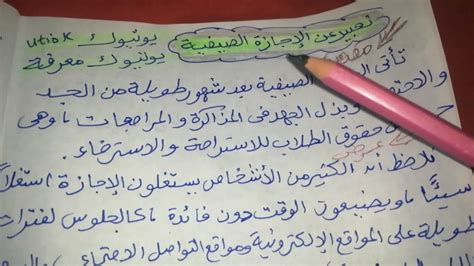 تعبير عن الإجازة الصيفية
يوتيوب ك utiok
يوتيوب ك معرفة
مقدمة
تأتي الصيفية بعد شهور طويلة من الجد
و بذل الجهد في المذاكرة والمراجعات ما وهي
حقوق الطلاب للاستراحة والاسترخاء.
نلاحظ أنه الكثير من الأشخاص يستغلون الإجازة استغلا
سيئًا ما ويضيعون الوقت دون فائدة ما كالجلوس لفترات
طويلة على المواقع الإلكترونية ومواقع التواصل الاجتماعي